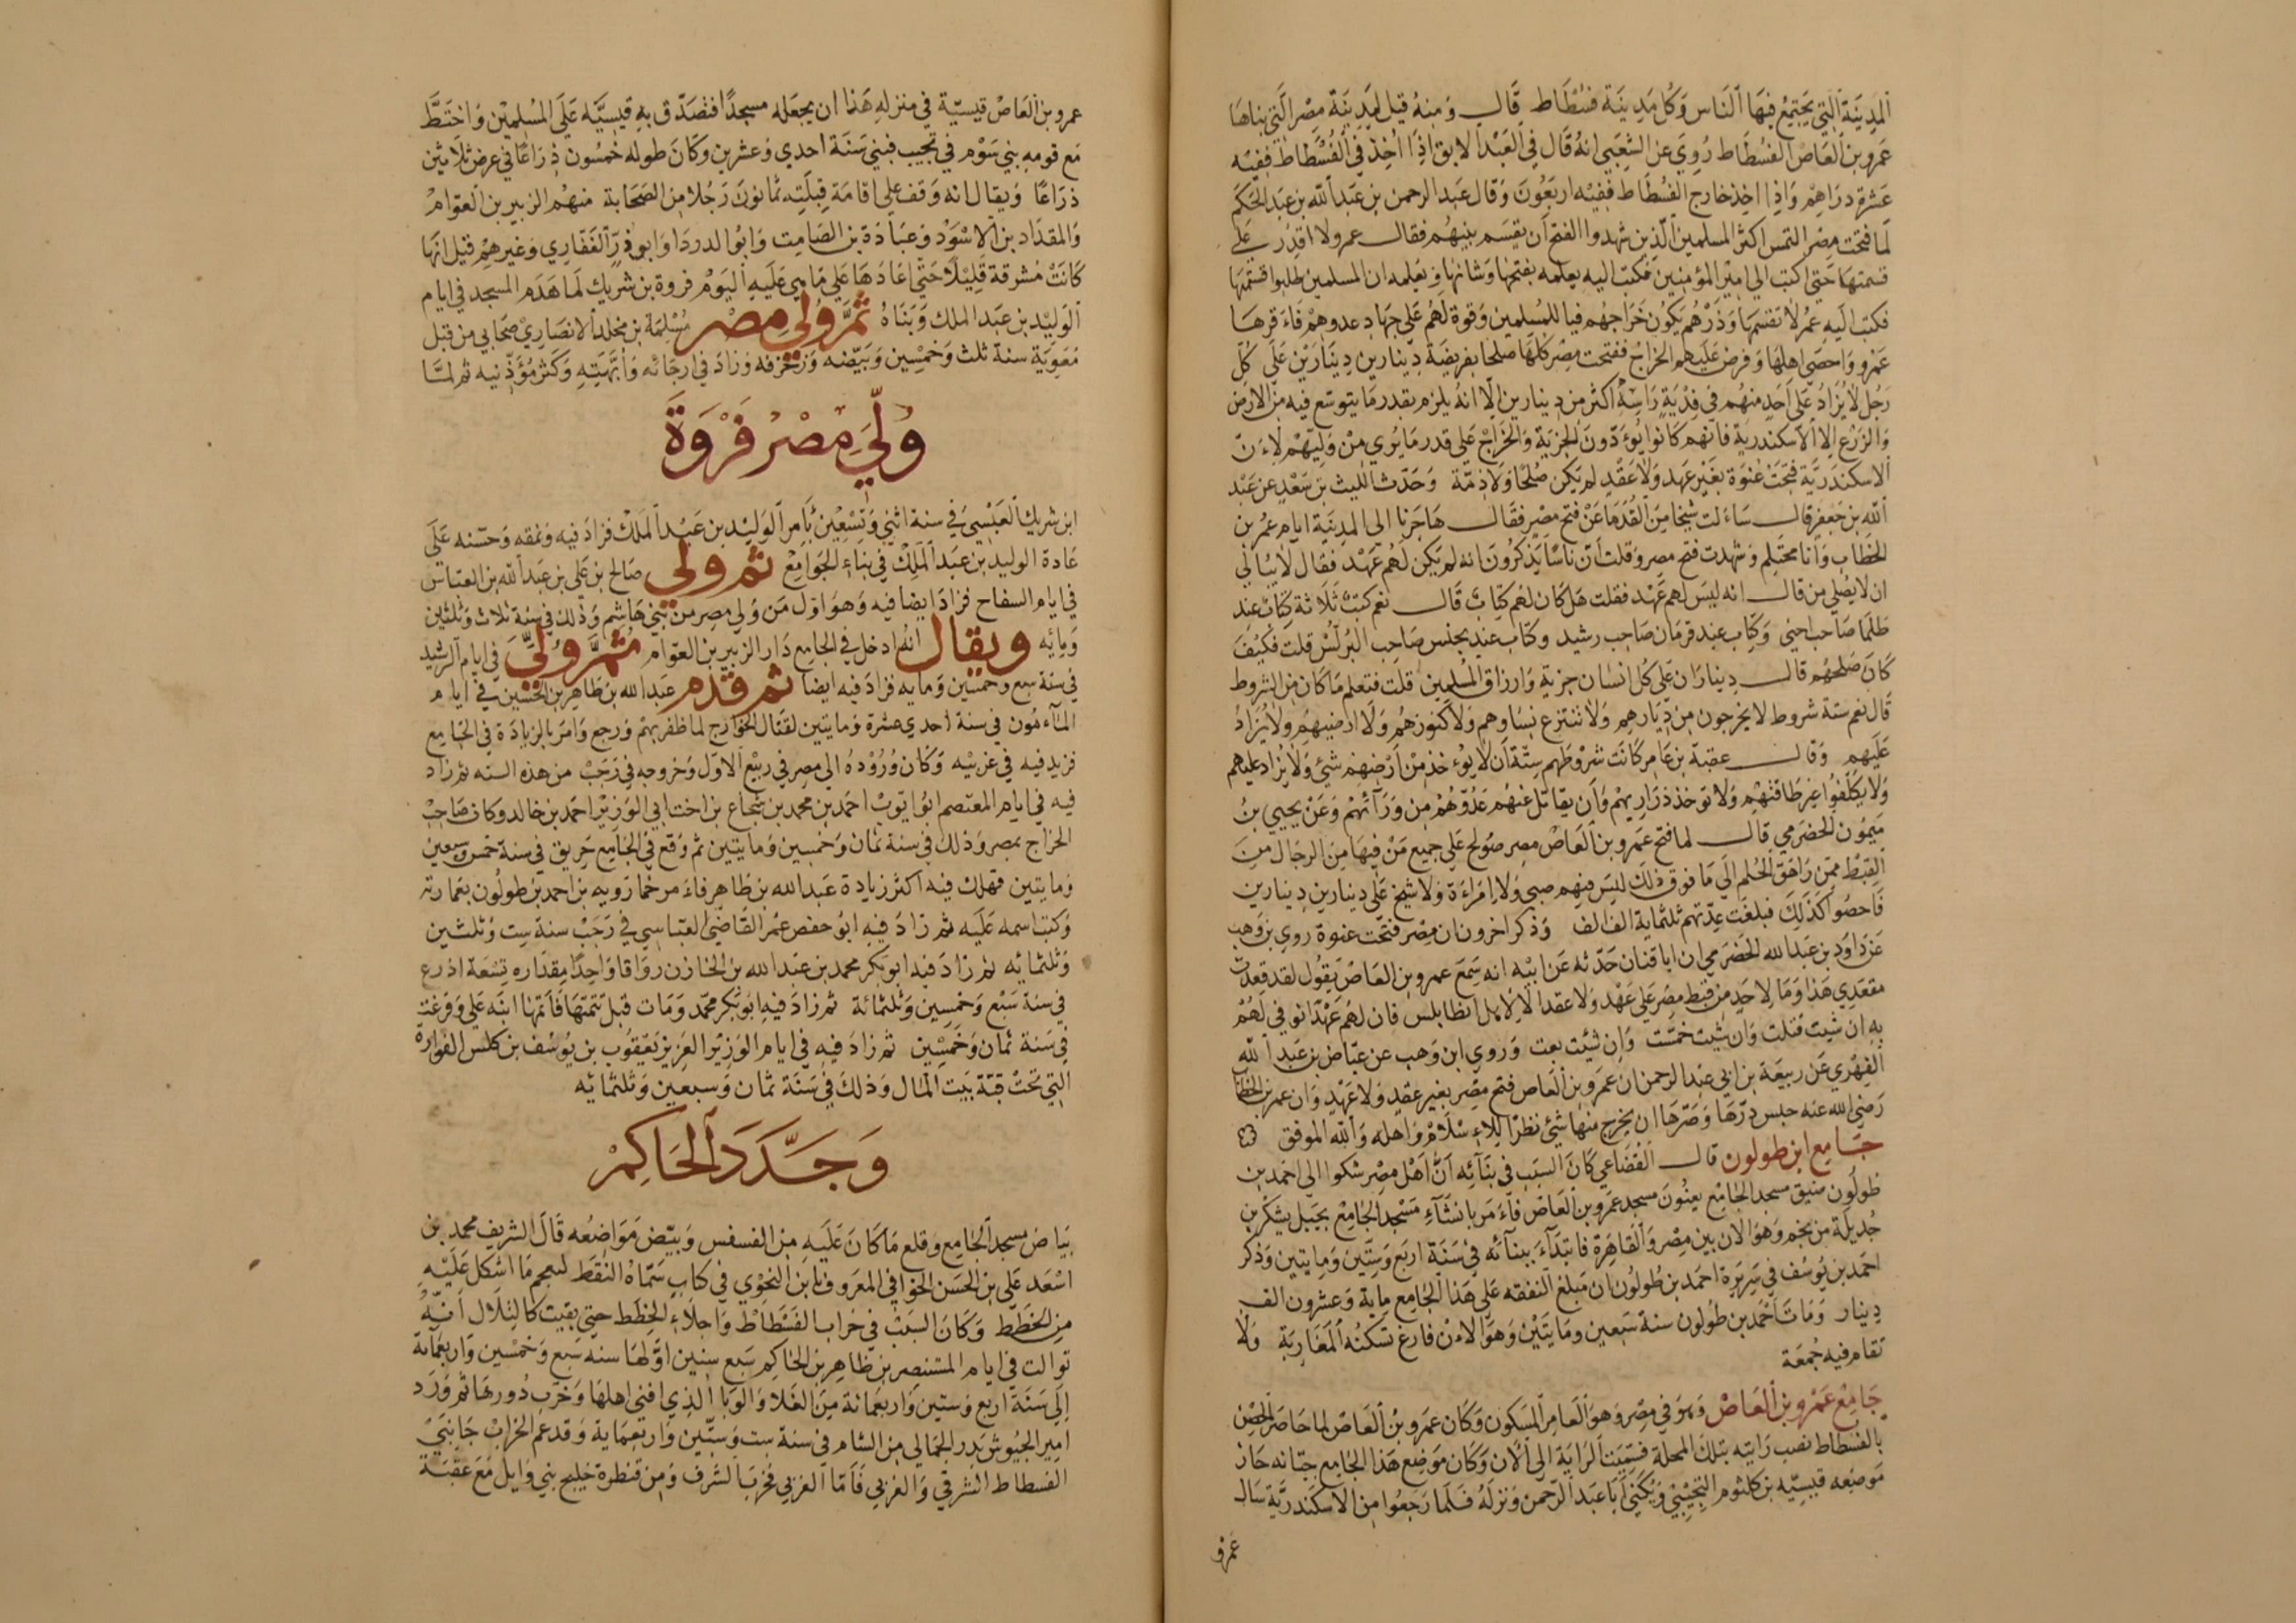 المدينة التي يجتمع فيها الناس وكل مدينة فسطاط قال ومنه قيل لمدينة مصر التي بناها
عمرو بن العاص الفسطاط روي عن الشعبي انه قال في العبد الابق اذا اخذ في الفسطاط ففيه
عشرة دراهم واذا اخذ خارج الفسطاط ففيه اربعون وقال عبد الرحمن بن عبد الله بن عبد الحكم
لما فتحت مصر التمس اكثر المسلمين الذين شهدوا الفتح ان يقسم بينهم فقال عمرو لا اقدر على
قسمتها حتى اكتب الي امير المؤمنين فكتب اليه يعلمه بفتحها وشانها ويعلمه ان المسلمين طلبوا قسمتها
فكتب اليه عمر لا تقسمها وذرهم يكون خراجهم فيا للمسلمين وقوة لهم على جهاد عدوهم فاءقرها
عمرو واحصى اهلها وفرض عليهم الخراج ففتحت مصر كلها صلحا بفريضة دينارين دينارين على كل
رجل لا يزاد على احد منهم في فدية راسه اكثر من دينارين الا انه يلزم بقدر ما يتوسع فيه من الارض
والزرع الا الاسكندرية فانهم كانوا يوءدون الجزية والخراج على قدر ما يري من وليهم لاءن
الاسكندرية فتحت عنوة بغير عهد ولا عقد لم يكن صلحا ولا ذمة وحدث الليث بن سعد عن عبد
الله بن جعفر قال ساءلت شيخا من القدما عن فتح مصر فقال هاجرنا الي المدينة ايام عمر بن
الخطاب وانا محتلم وشهدت فتح مصر وقلت ان ناسا يذكرون انه لم يكن لهم عهد فقال لا يبالي
ان لا يصلي من قال انه ليس لهم عهد فقلت هل كان لهم كتاب قال نعم كتب ثلاثة كتاب عند
طلما صاحب اخنى وكتاب عند قرمان صاحب رشيد وكتاب عند يحنس صاحب البرلس قلت فكيف
كان صلحهم قال ديناران على كل انسان جزية وارزاق المسلمين قلت فتعلم ما كان من الشروط
قال نعم ستة شروط لا يخرجون من ديارهم ولا تنتزع نساوهم ولا كنوزهم ولا ارضيهم ولا يزاد
عليهم وقال عقبة بن عامر كانت شروطهم ستة ان لا يوءخذ من ارضهم شئ ولا يزاد عليهم
ولا يكلفوا غير طاقتهم ولا توخذ ذراريهم وان يقاتل عنهم عدوهم من ورآئهم وعن يحيي بن
ميمون الحضرمي قال لما فتح عمرو بن العاص مصر صولح على جميع من فيها من الرجال من
القبط ممن راهق الحلم الى ما فوق ذلك ليس فيهم صبي ولا امراءة ولا شيخ على دينارين دينارين
فاحصوا كذلك فبلغت عدتهم ثلثماية الف الف وذكر اخرون ان مصر فتحت عنوة روي بن وهب
عن داود بن عبد الله الحضرمي ان ابا قنان حدثه عن ابيه انه سمع عمرو بن العاص يقول لقد قعدت
مقعدي هذا وما لاحد من قبط مصر علي عهد ولا عقد الا لاهل انطابلس فان لهم عهدا نوفي لهم
به ان شيت قتلت وان شيت خمست وان شئت بعت وروي ابن وهب عن عياض بن عبد الله
الفهري عن ربيعة بن ابي عبد الرحمن ان عمرو بن العاص فتح مصر بغير عقد ولا عهد وان عمر بن الخطاب
رضي الله عنه حبس درها وصرها ان يخرج منها شئ نظرا للاءسلام واهله والله الموفق
جامع ابن طولون قال القضاعي كان السبب في بنآئه ان اهل مصر شكوا الي احمد بن
طولون ضيق مسجد الجامع يعنون مسجد عمرو بن العاص فاءمر بانشآء مسجد الجامع بجبل يشكر بن
جديلة من نجم وهو الان بين مصر والقاهرة فابتدآء ببنآئه في سنة اربع وستين ومايتين وذكر
احمد بن يوسف في سيرة احمد بن طولون ان مبلغ النفقه على هذا الجامع ماية وعشرون الف
دينار ومات احمد بن طولون سنة سبعين ومايتين وهو الاءن فارغ تسكنه المغاربة ولا
تقام فيه جمعة
جامع عمرو بن العاص وهو في مصر وهو العامر المسكون وكان عمرو بن العاص لما حاصر الحصن
بالفسطاط نصب رايته بتلك المحلة فسميت الراية الى الان وكان موضع هذا الجامع جبانه حاز
موضعه قيسيه بن كلثوم التجيبي ويكني ابا عبد الرحمن ونزله فلما رجعوا من الاسكندرية سال
عمرو
عمرو بن العاص قيسية في منزله هذا ان يجعله مسجدا فتصدق به قيسيه على المسلمين واختط
مع قومه بني سوم في تجيب فبني سنة احدي وعشرين وكان طوله خمسون ذراعا في عرض ثلاثين
ذراعا ويقال انه وقف علي اقامة قبلته ثمانون رجلا من الصحابة منهم الزبير بن العوام
والمقداد بن الاسود وعبادة بن الصامت وابو الدردا وابو ذر الغفاري وغيرهم قيل انها
كانت مشرقة قليلا حتى اعادها على ما هي عليه اليوم فروة بن شريك لما هدم المسجد في ايام
الوليد بن عبد الملك وبناه ثم ولي مصر مسلمة بن مخلد الانصاري صحابي من قبل
معوية سنة ثلث وخمسين وبيضه وزخرفه وزاد في ارجائه وابهته وكثر مؤذنيه ثم لما
ولي مصر فروة
ابن شريك العبسي في سنة اثني وتسعين بامر الوليد بن عبد الملك فزاد فيه ونمقه وحسنه على
عادة الوليد بن عبد الملك في بناء الجوامع ثم ولي صالح بن علي بن عبد الله بن العباس
في ايام السفاح فزاد ايضا فيه وهو اول من ولي مصر من بني هاشم وذلك في سنة ثلاث وثلثين
وماية ويقال انه ادخل في الجامع دار الزبير بن العوام ثم ولي في ايام الرشيد
في سنة سبع وخمسين وماية فزاد فيه ايضا ثم قدم عبد الله بن طاهر بن الحسين في ايام
المآءمون في سنة احدي عشرة ومايتين لقتال الخوارج لما ظفر بهم ورجع وامر بالزيادة في الجامع
فزيد فيه في غربيه وكان وروده الي مصر في ربيع الاول وخروجه في رجب من هذه السنه ثم زاد
فيه في ايام المعتصم ابو ايوب احمد بن محمد بن شجاع بن اخت ابي الوزير احمد بن خالد وكان صاحب
الخراج بمصر وذلك في سنة ثمان وخمسين ومايتين ثم وقع في الجامع حريق في سنة خمس وسبعين
ومايتين فهلك فيه اكثر زيادة عبد الله بن طاهر فاءمر خمارويه بن احمد بن طولون بعمارته
وكتب اسمه عليه ثم زاد فيه ابو حفص عمر القاضي العباسي في رجب سنة ست وثلثين
وثلثمائه ثم زاد فيه ابو بكر محمد بن عبد الله بن الخازن رواقا واحدا مقداره تسعة اذرع
في سنة سبع وخمسين وثلثمائة ثم زاد فيه ابو بكر محمد ومات قبل تتمتها فاتمها ابنه علي وفرغت
في سنة ثمان وخمسين ثم زاد فيه في ايام الوزير العزيز يعقوب بن يوسف بن كلس الفوارة
التي تحت قبة بيت المال وذلك في سنة ثمان وسبعين وثلثمائه
وجدد الحاكم
بياض مسجد الجامع وقلع ما كان عليه من الفسفس وبيض مواضعه قال الشريف محمد بن
اسعد علي بن الحسن الجوافي المعروف بابن النحوي في كتاب سماه النقط لمعجم ما اشكل عليه
من الخطط وكان السبب في خراب الفسطاط واجلاء الخطط حتى بقيت كالتلال انه
توالت في ايام المستنصر بن ظاهر بن الحاكم سبع سنين اولها سنه سبع وخمسين واربعمائة
الى سنة اربع وستين واربعمائة من الغلا والوبا الذي افني اهلها وخرب دورها ثم ورد
امير الجيوش بدر الجمالي من الشام في سنة ست وستين واربعماية وقد عم الخراب جانبي
الفسطاط الشرقي والغربي فاما الغربي فخرب الشرف ومن قنطرة خليج بني وايل مع عقبة